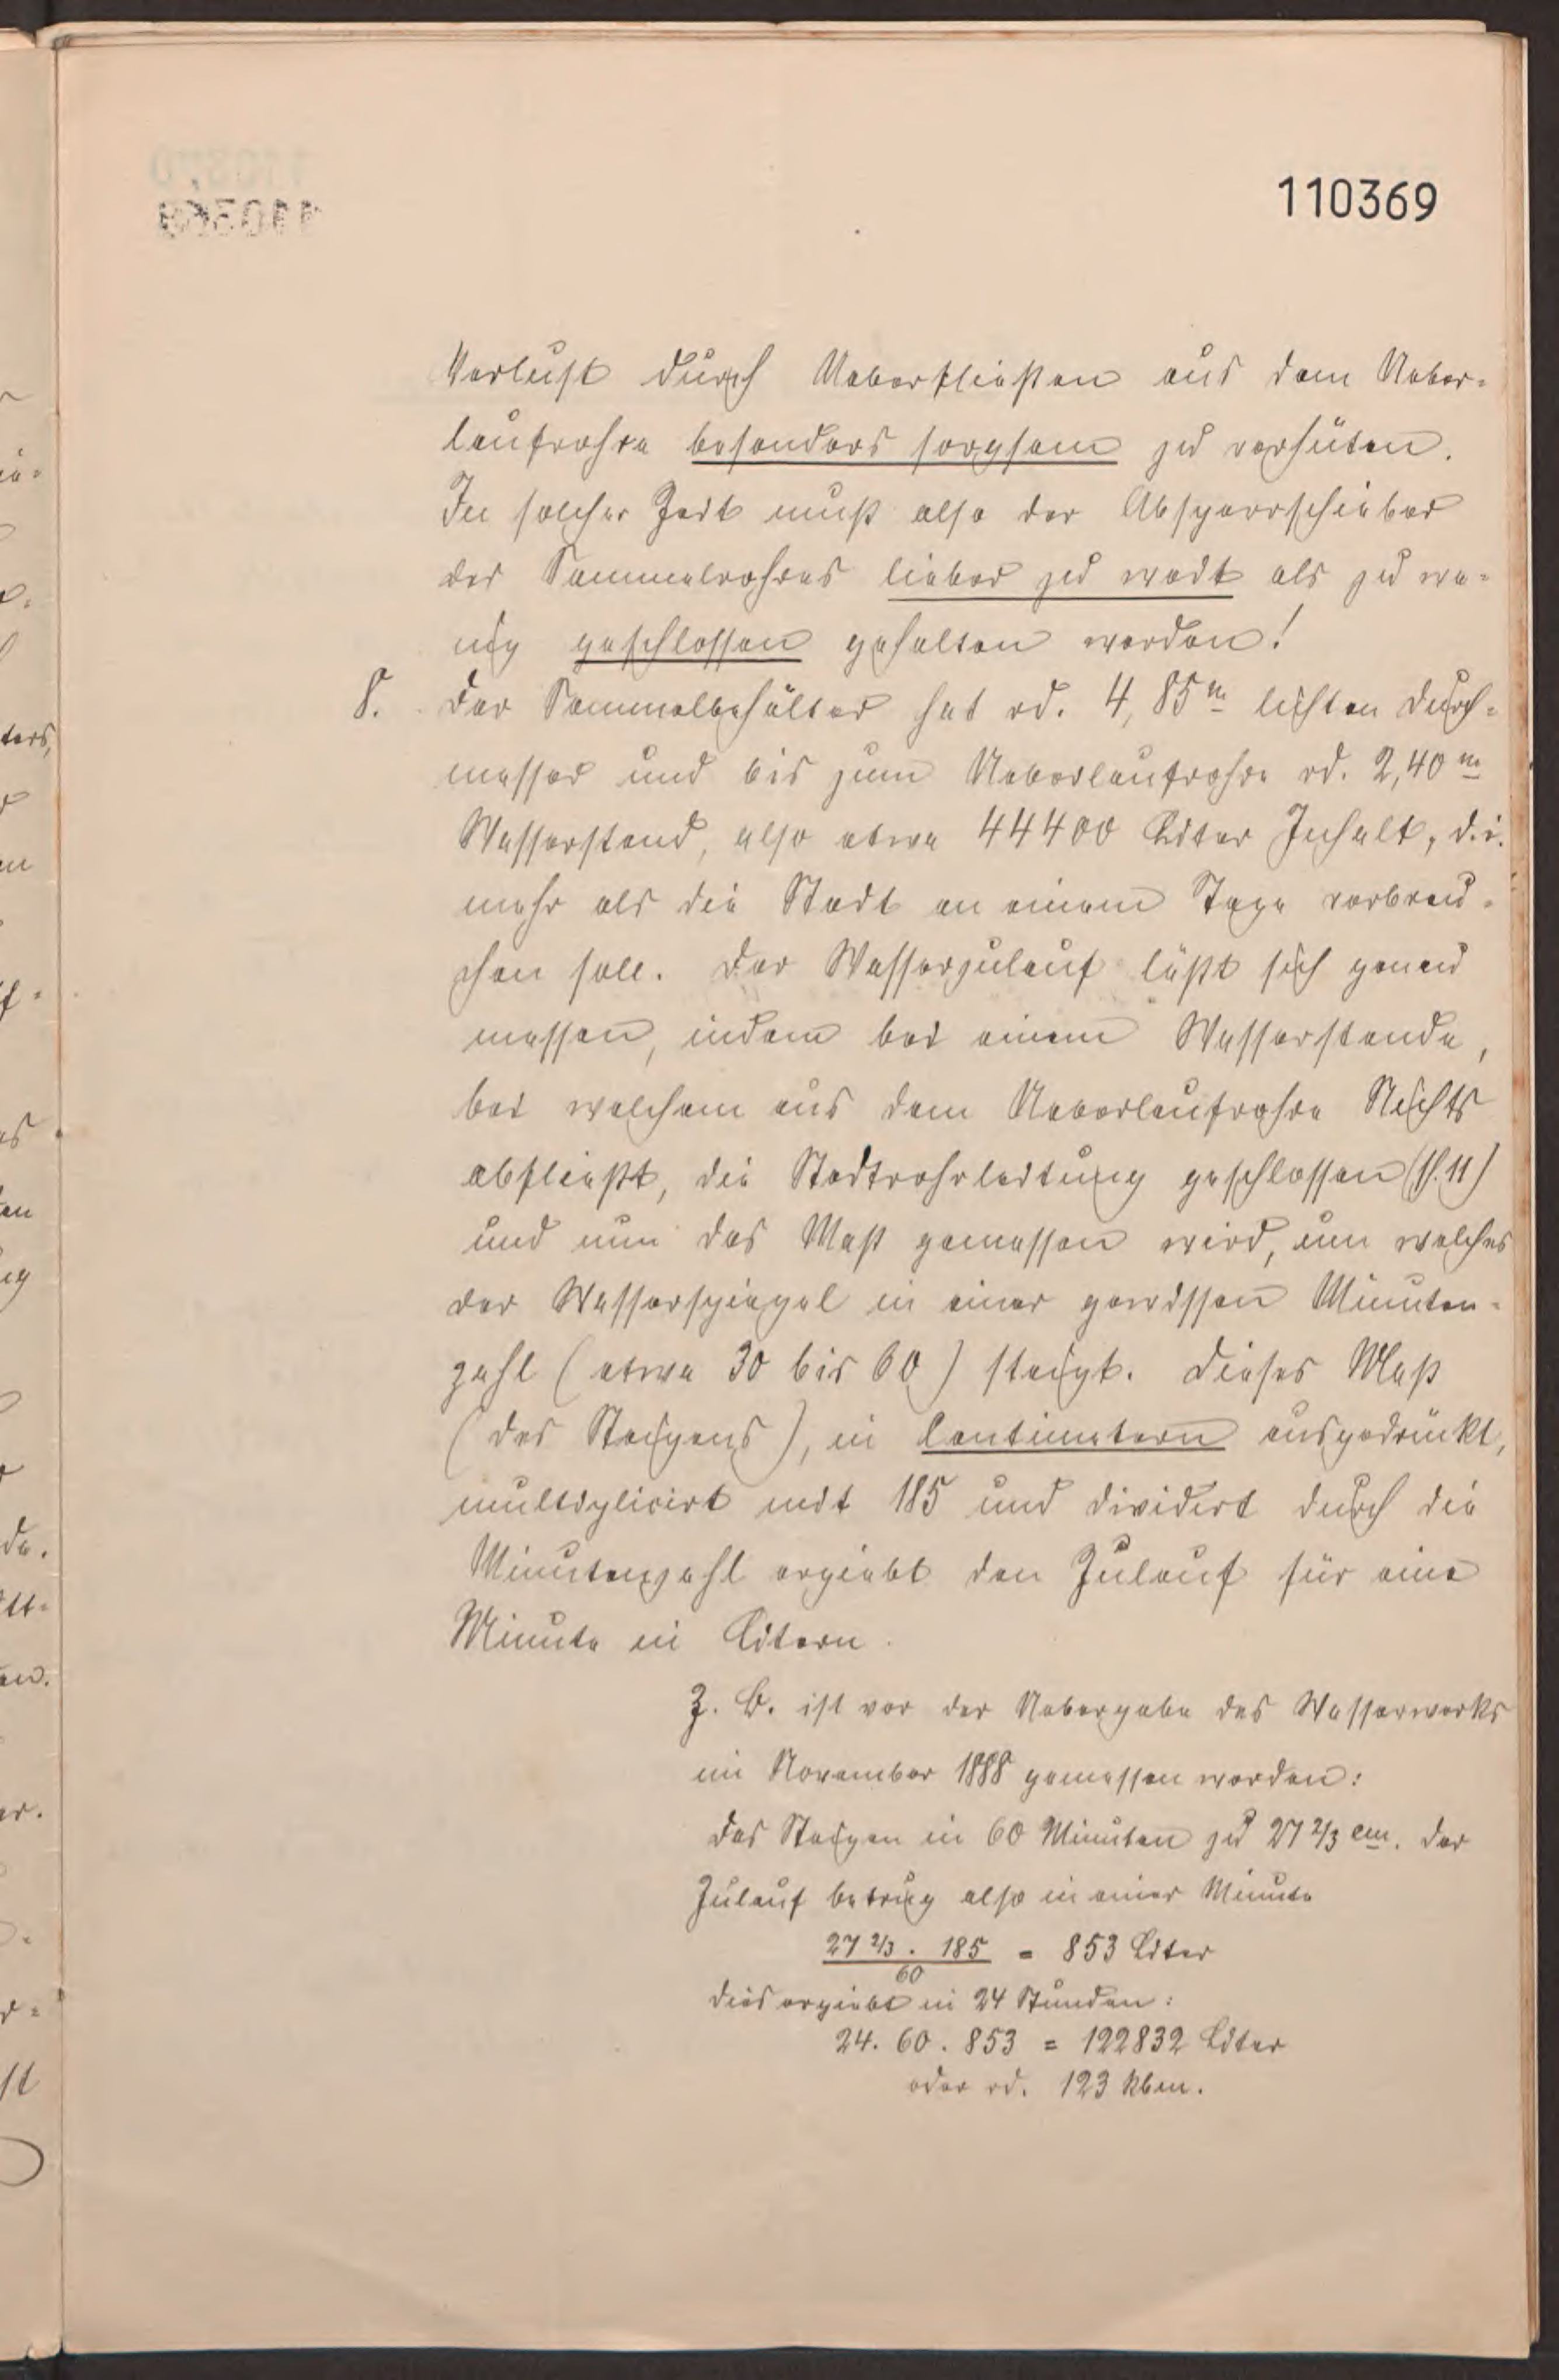 110369
Verlust durch Ueberfließen aus dem Ueber-
laufrohre besonders sorgsam zu verhüten.
In solcher Zeit muß also der Absperrschieber
des Sammelrohres lieber zu weit als zu we-
nig geschlossen gehalten werden!
8. Der Sammelbehälter hat rd. 4,85 m lichten Durch-
messer und bis zum Ueberlaufrohre rd. 2,40 m
Wasserstand, also etwa 44400 Liter Inhalt, d. i.
mehr als die Stadt an einem Tage verbrau-
chen soll. Der Wasserzulauf läßt sich genau
messen, indem bei einem Wasserstande,
bei welchem aus dem Ueberlaufrohre Nichts
abfließt, die Stadtrohrleitung geschlossen (§. 11)
und nun das Maß gemessen wird, um welches
der Wasserspiegel in einer gewissen Minuten-
zahl (etwa 30 bis 60) steigt. Dieses Maß
(des Steigens), in Centimetern ausgedrückt,
multiplicirt mit 185 und dividirt durch die
Minutenzahl ergiebt den Zulauf für eine
Minute in Litern.
Z. B. ist vor der Uebergabe des Wasserwerks
im November 1888 gemessen worden:
das Steigen in 60 Minuten zu 27 2/3 cm. Der
Zulauf betrug also in einer Minute
27 2/3 . 185 = 853 Liter
60
dies ergiebt in 24 Stunden:
24. 60. 853 = 122832 Liter
oder rd. 123 kbm.